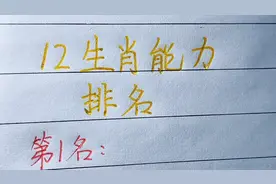 12生肖能力
排名
第1名: